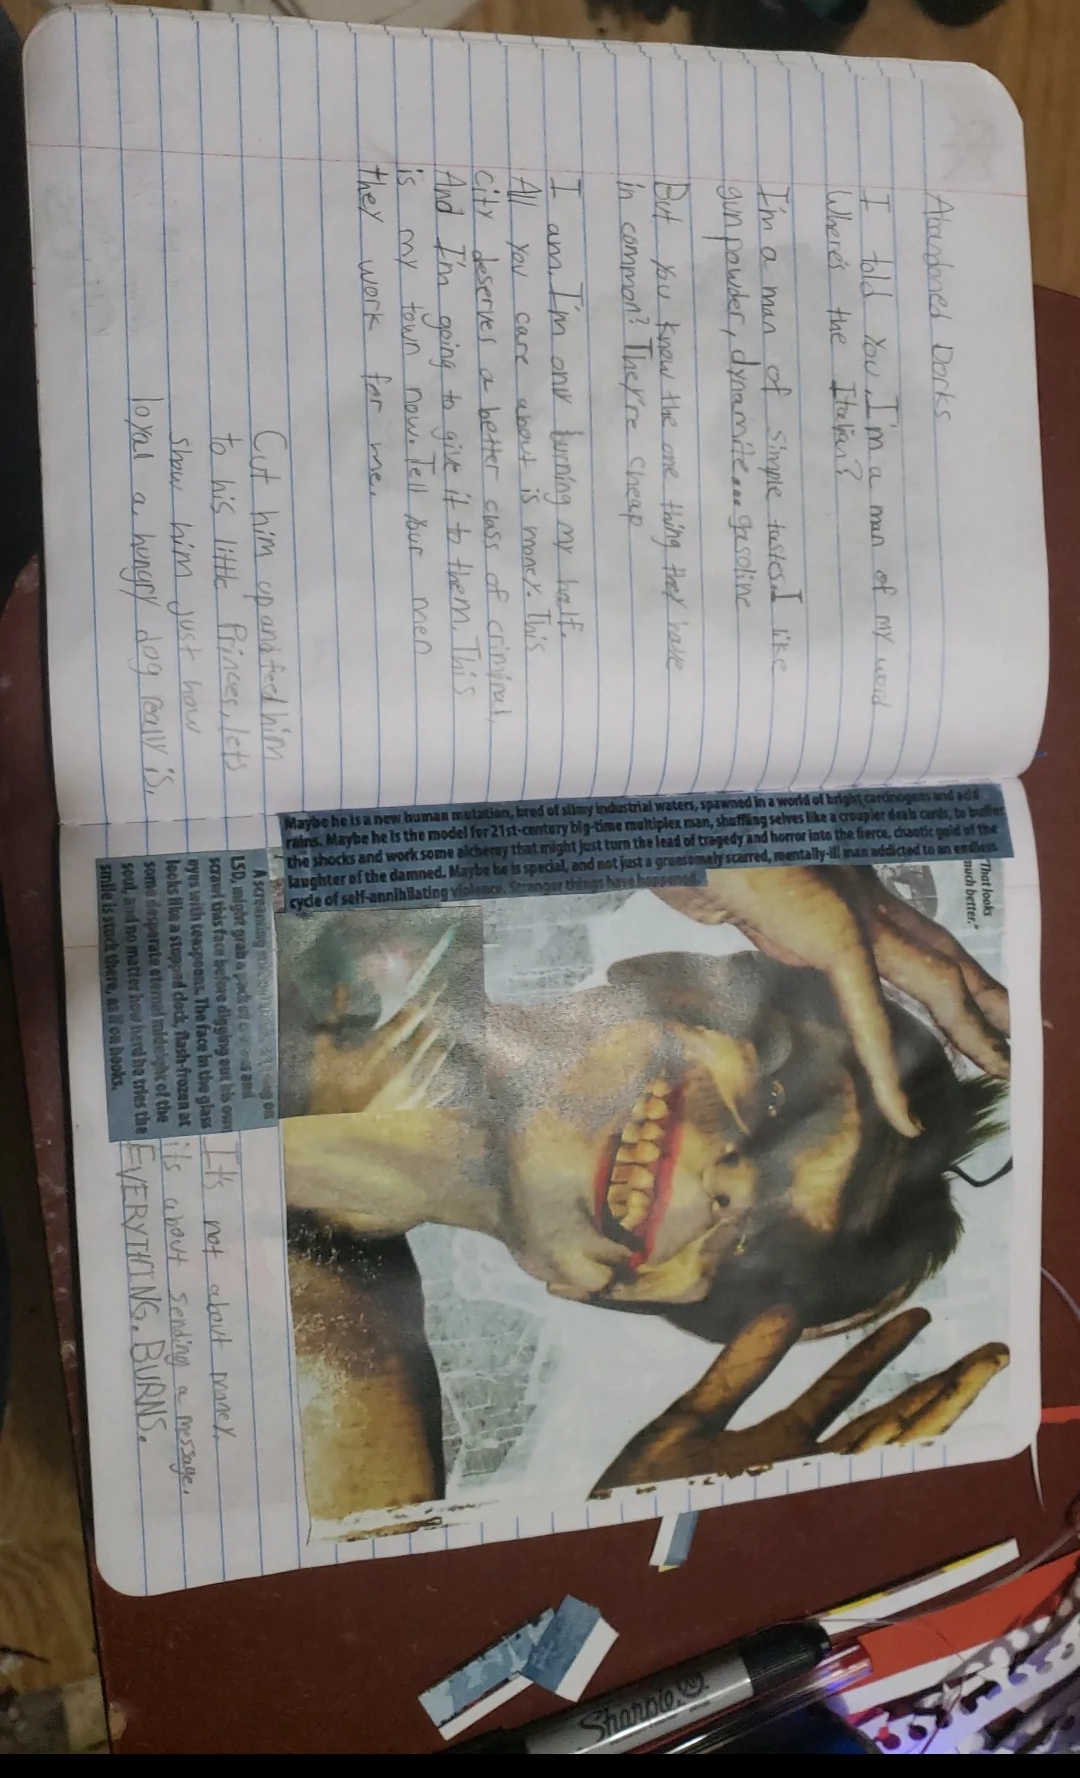 Abandoned Docks
I told you, I'm a man of my word
Where's the Italian?
I'm a man of simple tastes. I like
gunpowder, dynamite... gasoline
But you know the one thing they have
in common? They're cheap
I am. I'm only burning my half.
All you care about is money. This
city deserves a better class of criminal,
And I'm going to give it to them. This
is my town now. Tell your men
they work for me.
Cut him up and feed him
to his little Princes, lets
show him just how
loyal a hungry dog really is.
Maybe he is a new human mutation, bred of slimy industrial waters, spawned in a world of bright carcinogens and acid
rains. Maybe he is the model for 21st-century big-time multiplex man, shuffling selves like a croupier deals cards, to buffer
the shocks and work some alchemy that might just turn the lead of tragedy and horror into the fierce, chaotic gold of the
laughter of the damned. Maybe he is special, and not just a gruesomely scarred, mentally-ill man addicted to an endless
cycle of self-annihilating violence. Stranger things have happened.
"That looks
much better."
A screaming on
LSD, might grab a pack of and
scrawl this face before digging out his own
eyes with teaspoons. The face in the glass
looks like a stopped clock, flash-frozen at
some desperate eternal midnight of the
soul, and no matter how hard he tries the
smile is stuck there, as if on hooks.
It's not about money.
it's about sending a message.
EVERYTHING. BURNS.
Sharpie